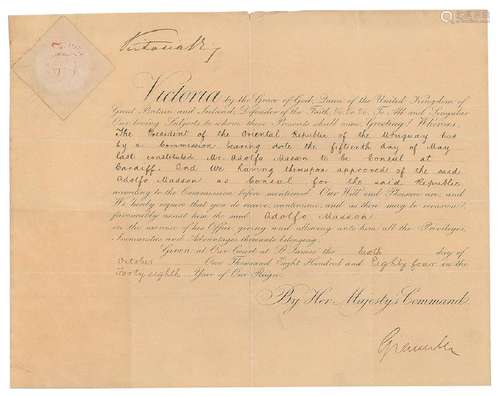 Victoria R
Victoria by the Grace of God, Queen of the United Kingdom of
Great Britain and Ireland, Defender of the Faith, &c. &c. &c. To All and Singular
Our loving Subjects to whom these Presents shall come, Greeting! Whereas,
The President of the Oriental Republic of the Uruguay has
by a Commission bearing date the fifteenth day of May
last constituted Mr. Adolfo Masson to be Consul at
Cardiff. And We having thereupon approved of the said
Adolfo Masson as Consul for the said Republic
according to the Commission before mentioned Our Will and Pleasure are, and
We hereby require that you do receive, countenance, and as there may be occasion
favourably assist him the said Adolfo Masson
in the exercise of his Office, giving and allowing unto him all the Privileges,
Immunities and Advantages thereunto belonging.
Given at Our Court at St. James's the day of
October One Thousand Eight Hundred and Eighty four in the
Forty eighth Year of Our Reign.
By Her Majesty's Command.
Granville